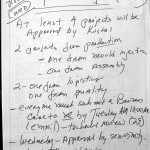 At least 4 projects will be
Approved by
2 projects from production
- one from mould injection
- one from Assembly
2 - one from logistics
one from quality
- everyone must submit a Business
Case to by Tuesday
(email) - technical review
- Wednesday - Approval by